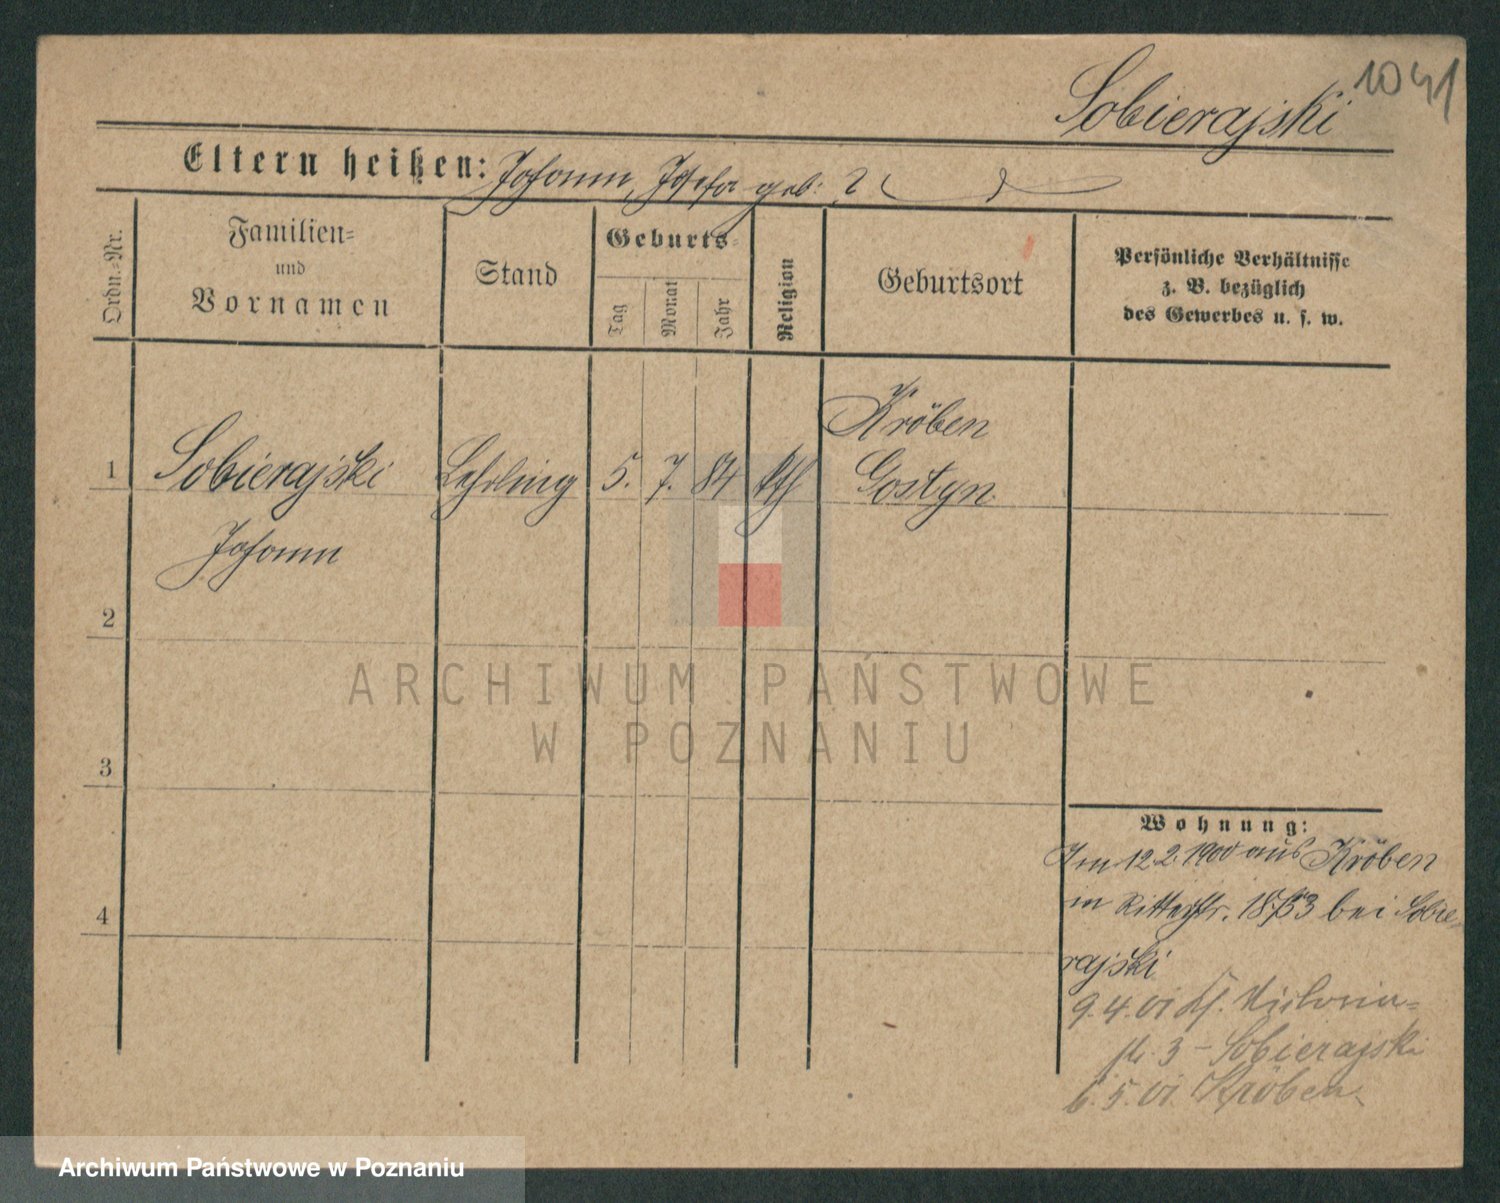 1041
Sobierajski
Eltern heißen: Johann, Josefa geb: ?
Ordn.-Nr.
Familien-
und
Vornamen
Stand
Geburts-
Tag
Monat
Jahr
Religion
Geburtsort
Persönliche Verhältnisse
z. B. bezüglich
des Gewerbes u. s. w.
Kröben
1 Sobierajski Lehrling 5. 7. 84 kth Gostyn
Johann
2
3
4
Wohnung:
Am 12.2.1900 aus Kröben
in Ritterstr. bei Sobie-
rajski
9.4.01 Victoria-
3 - Sobierajski
6.5.01 Kröben.
ARCHIWUM PAŃSTWOWE
W POZNANIU
Archiwum Państwowe w Poznaniu